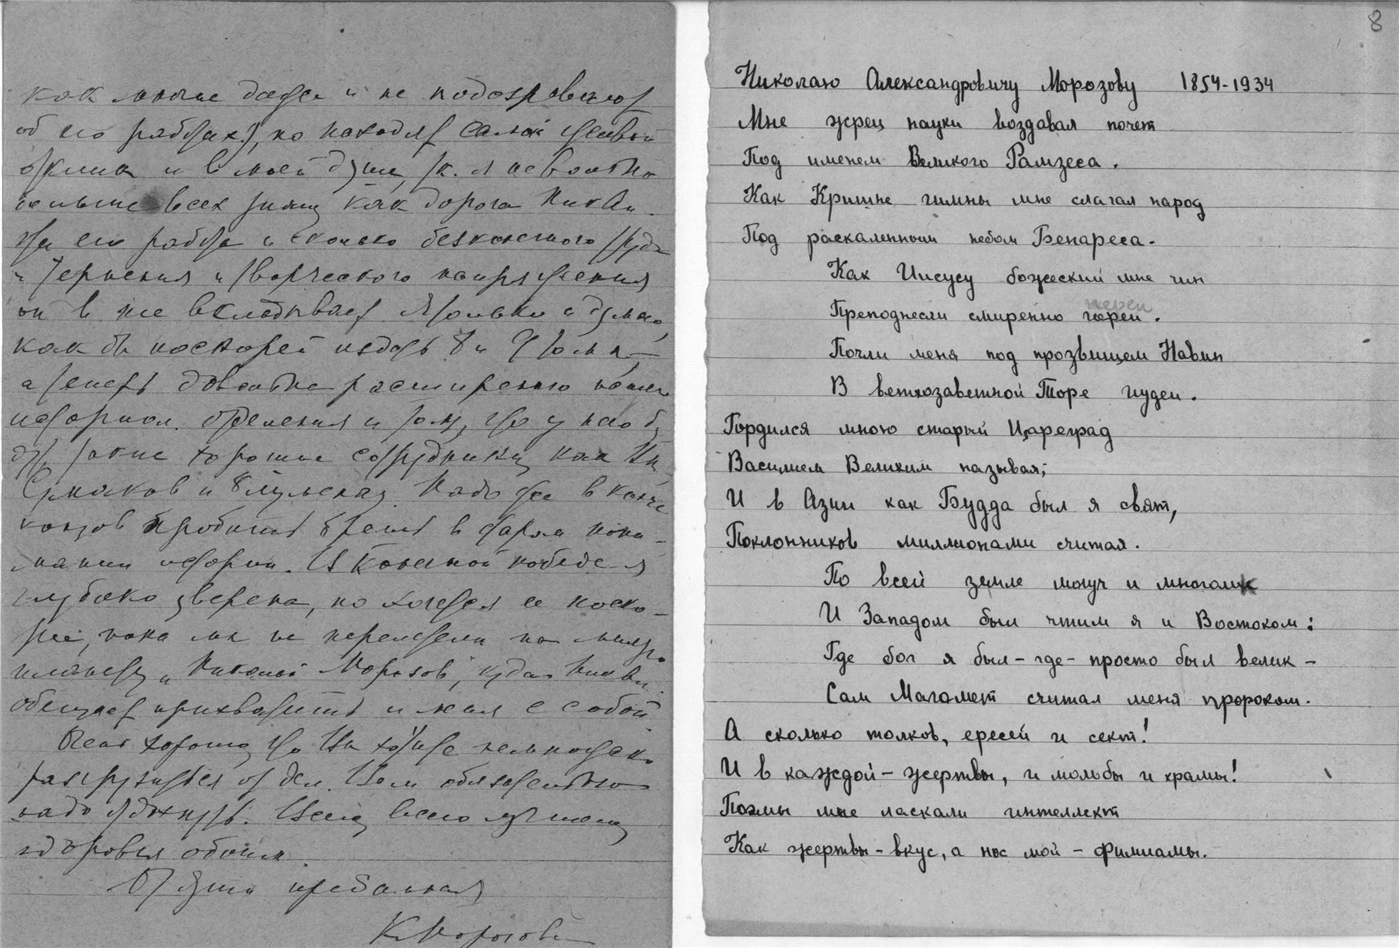 как многие даже и не подозревают
об его работах), но находят самый живой
отклик и в моей душе, т.к. я невольно
больше всех знаю как дорога Ник Ал.
эта его работа и сколько бесконечного труда
и терпения и творческого напряжения
он в нее вкладывает. Я только и думаю,
как бы поскорей издать 8 и 9 томы,
а теперь довольна расширению нашего
историч. отделения и тому, что у нас б
дут такие хорошие сотрудники, как
и Надо же в конце
концов пробить брешь в
истории. В конечной победе я
глубоко уверена, но хочется ее поско-
рее, пока мы не перелетели на
планету "Николай Морозов", куда Ник Ал.
обещает прихватить и меня с собой.
Очень хорошо, что Вы хотите немножечко
разгрузиться от дел. Вам обязательно
надо отдохнуть. Шлю всего лучшего,
здоровья обоим.
От души преданная
К Морозова
8
Николаю Александровичу Морозову 1854-1934
Мне жрец науки воздавал почет
Под именем Великого Рамзеса.
Как Кришне гимны мне слагал народ
Под раскаленным небом Бенареса.
Как Иисусу божеский мне чин
Преподнесли смиренно
Почли меня под прозвищем Навин
В ветхозаветной Торе иудеи.
Гордился мною старый Цареград
Василием Великим называя;
И в Азии как Будда был я свят,
Поклонников миллионами считая.
По всей земле могуч и многолик
И Западом был чтим я и Востоком:
Где бог я был-где-просто был велик-
Сам Магомет считал меня пророком.
А сколько толков, ересей и сект!
И в каждой-жертвы, и мольбы и храмы!
Поэмы мне ласкали интеллект
Как жертвы-вкус, а нос мой-фимиамы.